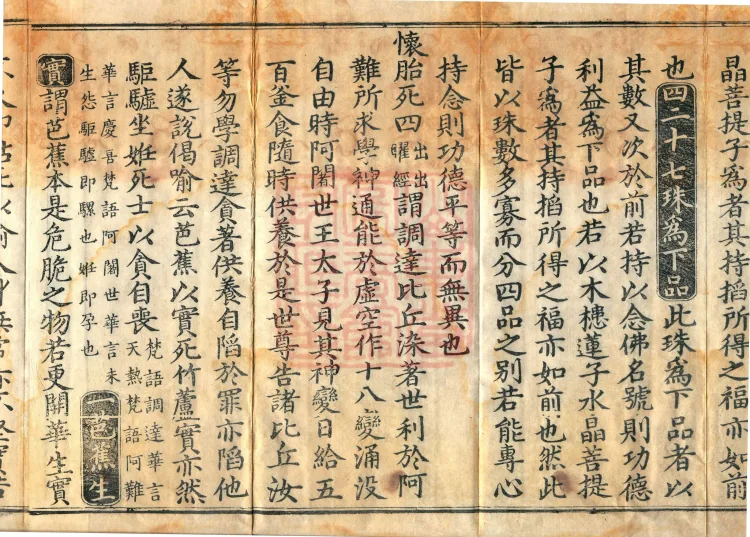 晶菩提子爲者其持搯所得之福亦如前
也四二十七珠爲下品此珠爲下品者以
其數又次於前若持以念佛名號則功德
利益爲下品也若以木槵蓮子水晶菩提
子爲者其持搯所得之福亦如前也然此
皆以珠數多寡而分四品之別若能專心
持念則功德平等而無異也
懷胎死四出出曜經謂調達比丘染著世利於阿
難所求學神通能於虛空作十八變涌没
自由時阿闍世王太子見其神變日給五
百釜食隨時供養於是世尊告諸比丘汝
等勿學調達貪著供養自陷於罪亦陷他
人遂說偈喻云芭蕉以實死竹蘆實亦然
駏驉坐姙死士以貪自喪梵語調達華言天熱梵語阿難
華言慶喜梵語阿闍世華言未生怨駏驉即騾也姙即孕也一芭蕉生
實謂芭蕉本是危脆之物若更開華生實